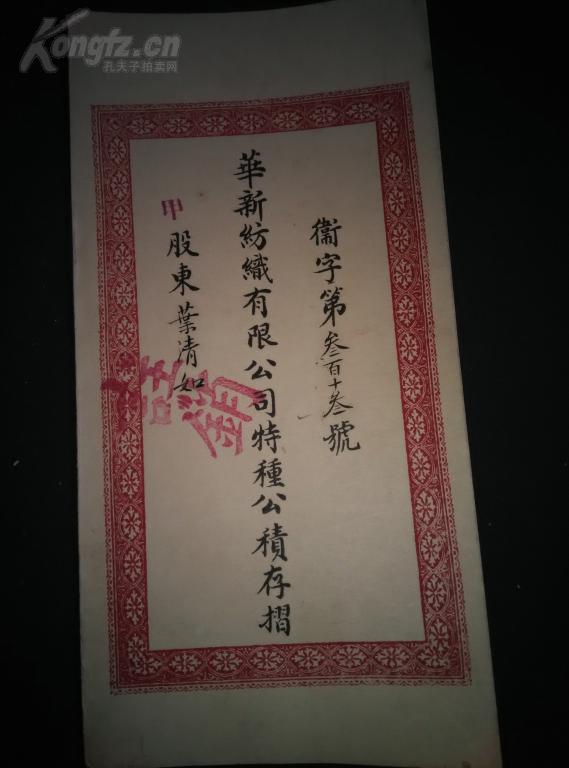 Kongfz.cn
孔夫子拍卖网
衞字第叁百十叁號
華新紡織有限公司特種公積存摺
甲
股東葉清如
註銷